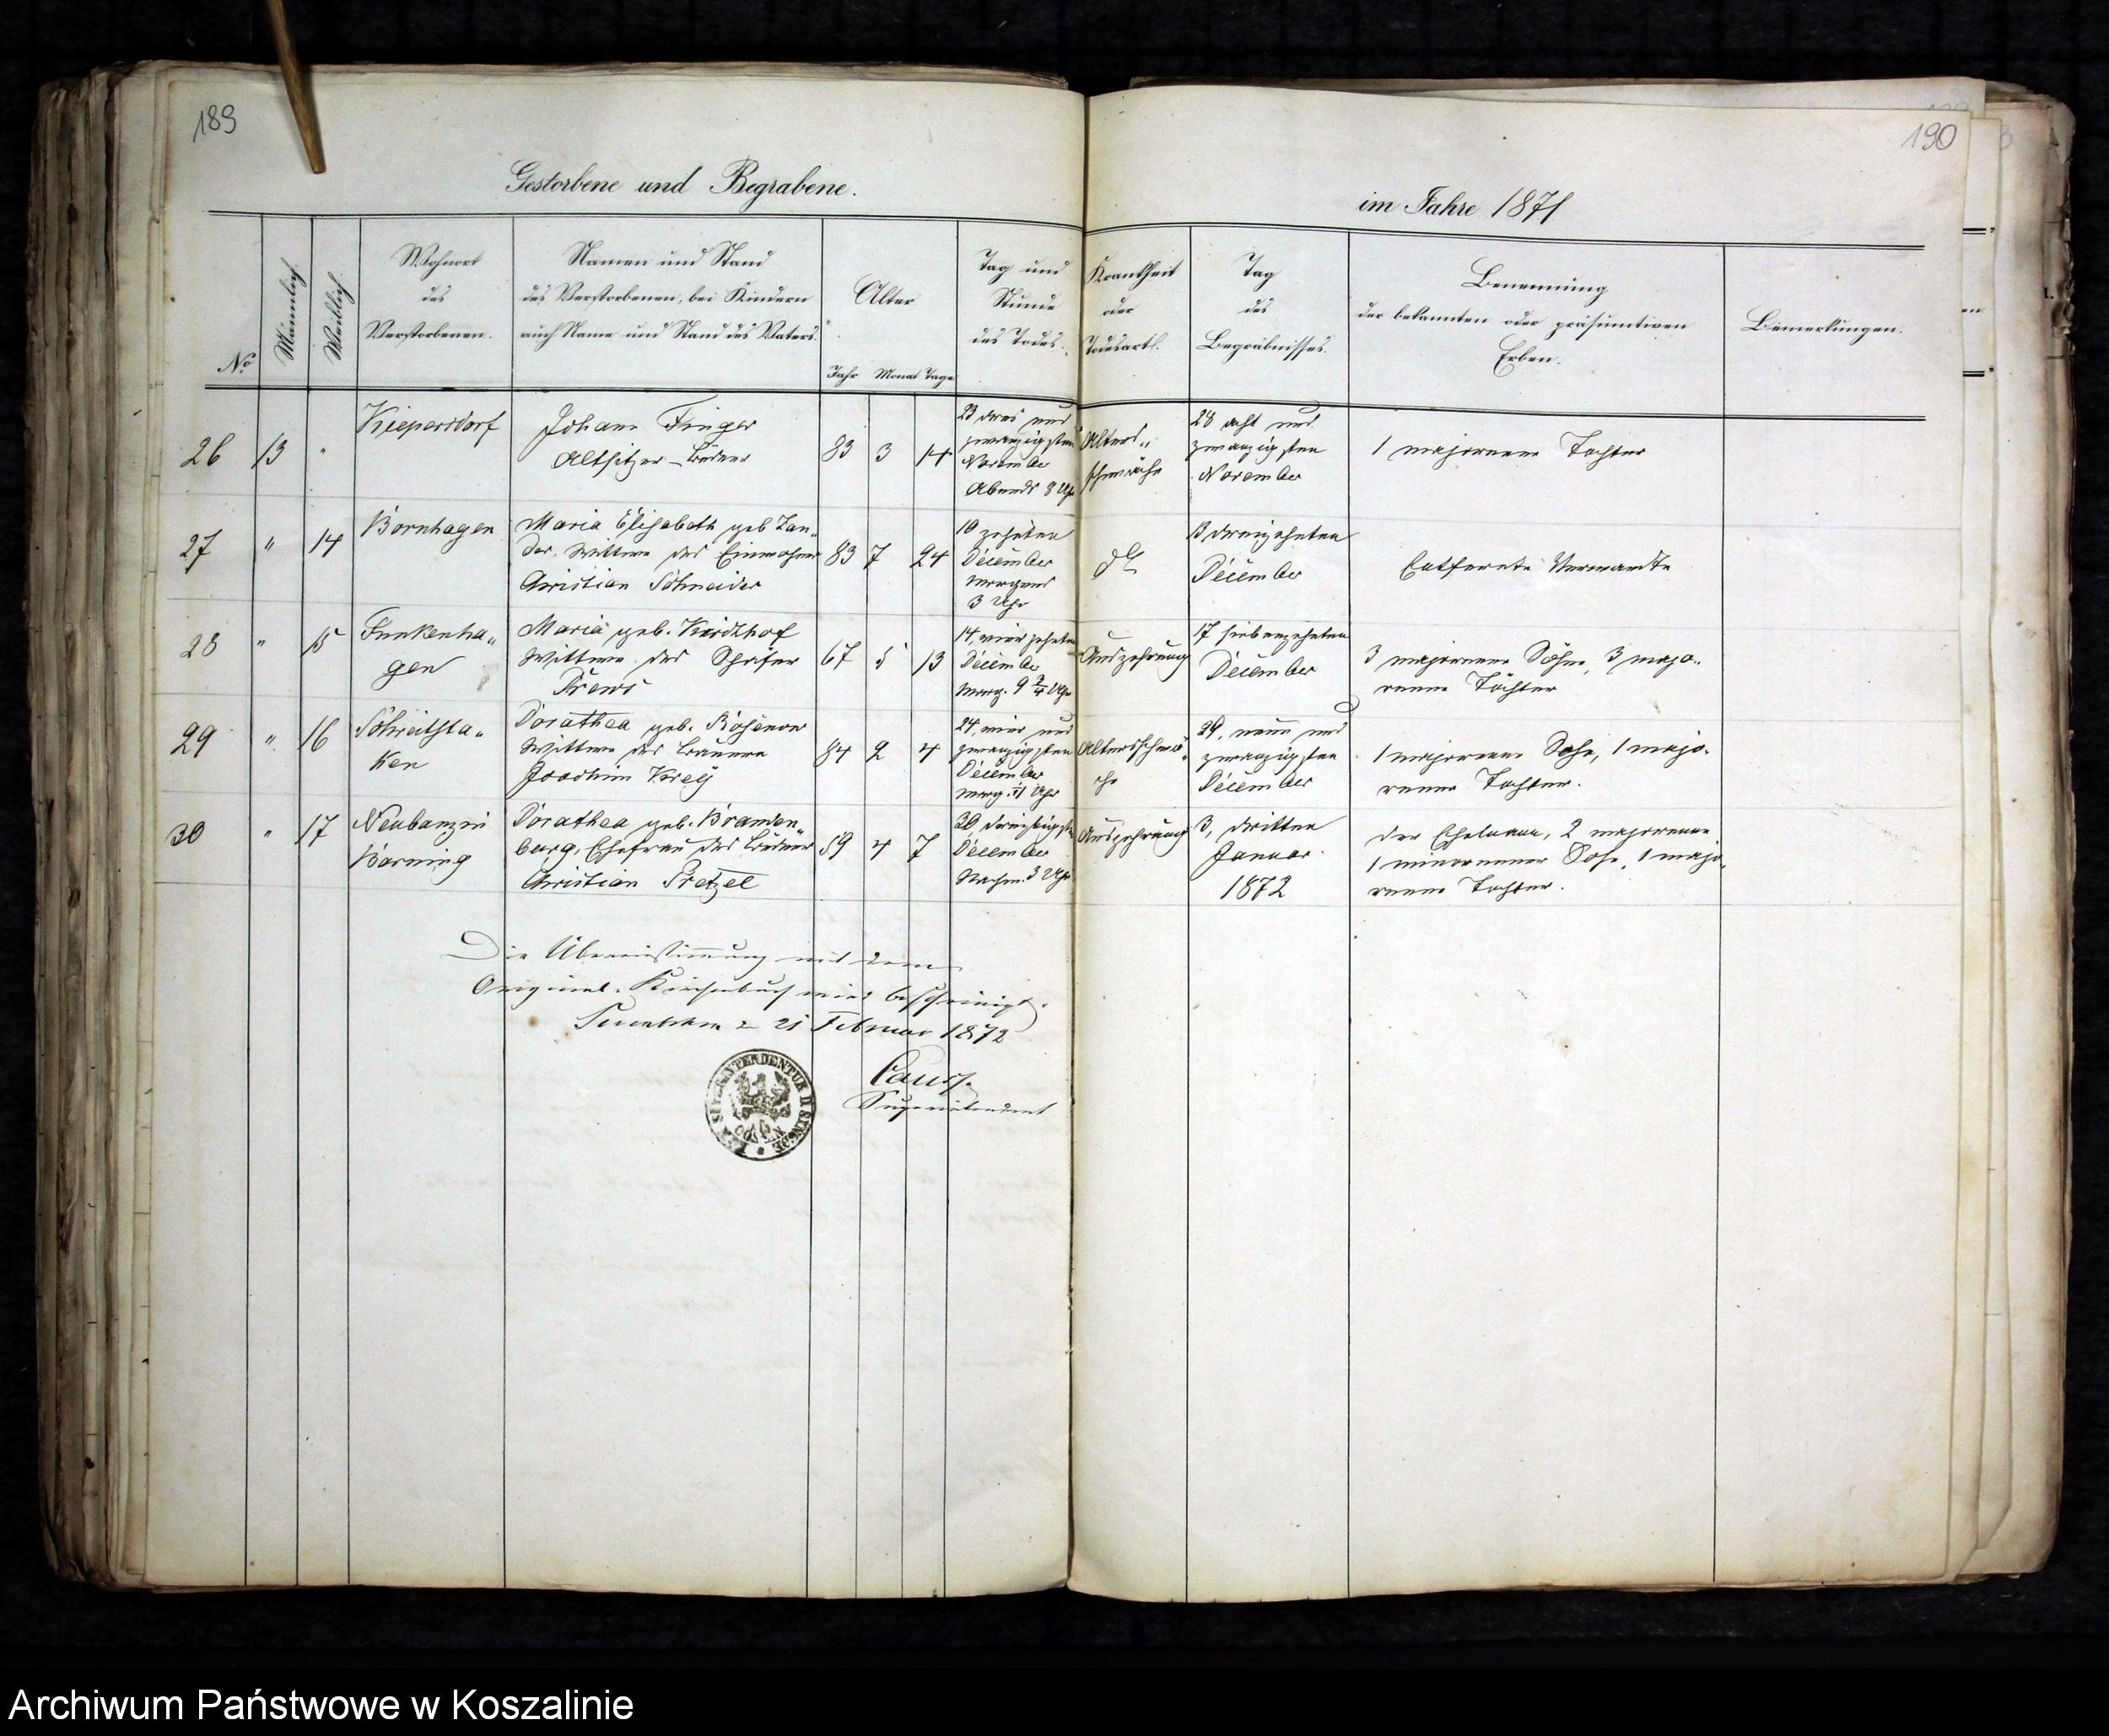 189
190
Gestorbene und Begrabene.
im Jahre 1871
No
Männlich.
Weiblich.
Wohnort
des
Verstorbenen.
Namen und Stand
des Verstorbenen, bei Kindern
auch Name und Stand des Vaters.
Alter
Jahr Monat Tage
Tag und
Stunde
des Todes.
Krankheit
oder
Todesart.
Tag
des
Begräbnisses.
Benennung
der bekannten oder präsumtiven
Erben.
Bemerkungen.
26
13
"
Kiepersdorf
Johann Finger
Altsitzer-Büdner
83 3 14
23 drei und
zwanzigsten
November
Abends 8 Uhr
Alters„
schwäche
28 acht und
zwanzigsten
November
1 majorenne Tochter
27
"
14
Bornhagen
Maria Elisabeth geb Zan„
der. Wittwe des Einwohner
Christian Schneider
83 7 24
10 zehnten
December
morgens
3 Uhr
dt
13 dreizehnten
December
Entfernte Verwandte
28
"
15
Funkenha„
gen
Maria geb. Kirchhof
Wittwe des Schäfer
Drews
67 5 13
14, vierzehnten
December
morg. 9 3/4 Uhr
Auszehrung
17 siebenzehnten
December
3 majorenne Söhne, 3 majo„
renne Töchter
29
"
16
Schreitsta„
ken
Dorathea geb. Rosenow
Wittwe des Bauern
Joachim
84 2 4
24, vier und
zwanzigsten
December
morg. 11 Uhr
Altersschwä„
che
29, neun und
zwanzigsten
December
1 majorenner Sohn, 1 majo„
renne Tochter.
30
"
17
Neubanzin
Barning
Dorathea geb. Branden„
burg, Ehefrau des Büdner
Christian Pretzel
59 4 7
30, dreißigsten
December
Nachm. 3 Uhr
Auszehrung
3, dritten
Januar
1872
der Ehemann, 2 majorenne
1 minorenner Sohn, 1 majo„
renne Tochter.
Die Übereinstimmung mit dem
Original-Kirchenbuch wird bescheinigt.
21 Februar 1872
Superintendent
Archiwum Państwowe w Koszalinie